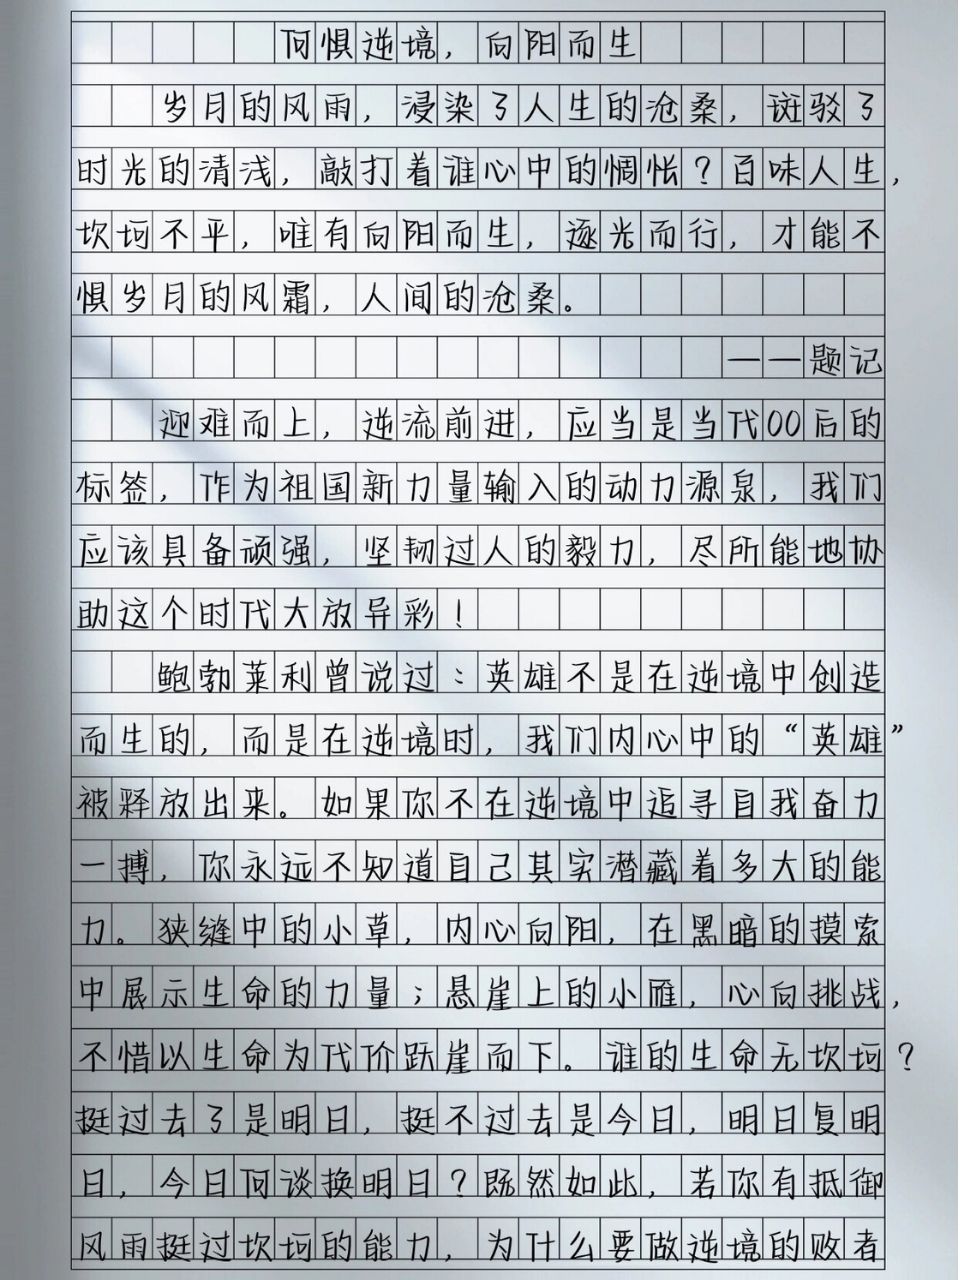 何惧逆境，向阳而生
岁月的风雨，浸染了人生的沧桑，斑驳了
时光的清浅，敲打着谁心中的惆怅？百味人生，
坎坷不平，唯有向阳而生，逐光而行，才能不
惧岁月的风霜，人间的沧桑。
——题记
迎难而上，逆流前进，应当是当代00后的
标签，作为祖国新力量输入的动力源泉，我们
应该具备顽强，坚韧过人的毅力，尽所能地协
助这个时代大放异彩！
鲍勃莱利曾说过：英雄不是在逆境中创造
而生的，而是在逆境时，我们内心中的“英雄”
被释放出来。如果你不在逆境中追寻自我奋力
一搏，你永远不知道自己其实潜藏着多大的能
力。狭缝中的小草，内心向阳，在黑暗的摸索
中展示生命的力量；悬崖上的小雁，心向挑战，
不惜以生命为代价跃崖而下。谁的生命无坎坷？
挺过去了是明日，挺不过去是今日，明日复明
日，今日何谈换明日？既然如此，若你有抵御
风雨挺过坎坷的能力，为什么要做逆境的败者